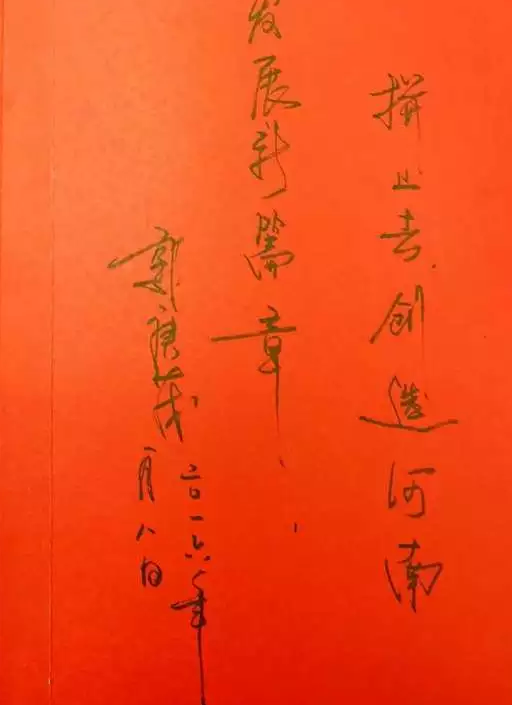 拼上去创造河南
发展新篇章
郭庚茂
二〇一六年
一月八日